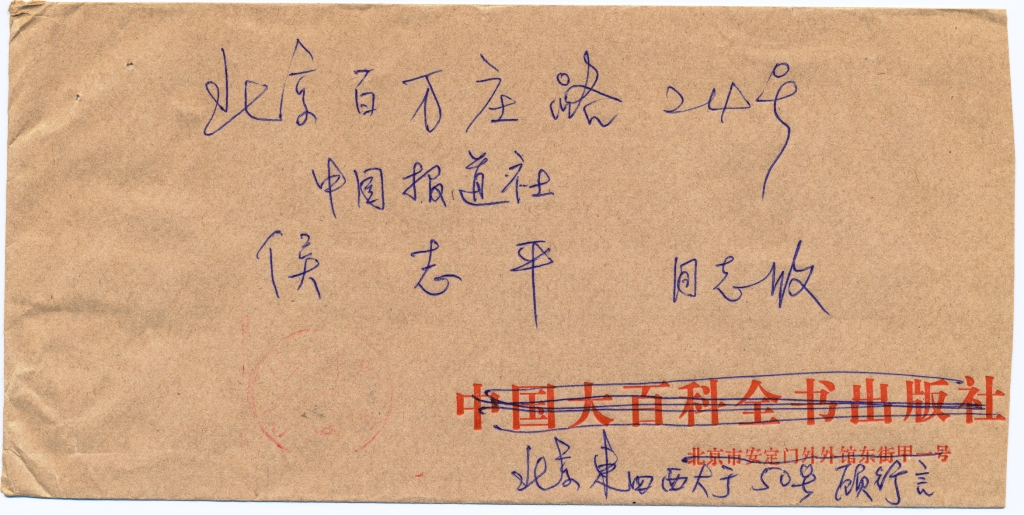 北京百万庄路24号
中国报道社
侯志平 同志收
中国大百科全书出版社
北京市安定门外外馆东街甲一号
北京东四西大于50号 顾行言